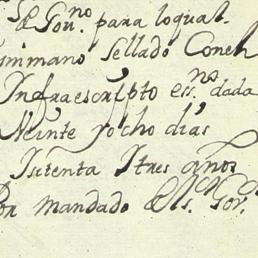 & Gou.no para loqual
mimano sellado Con el
Infraescripto ess.no dada
Veinte yocho dias
Isetenta Itres años
Por mandado de s. Gov.